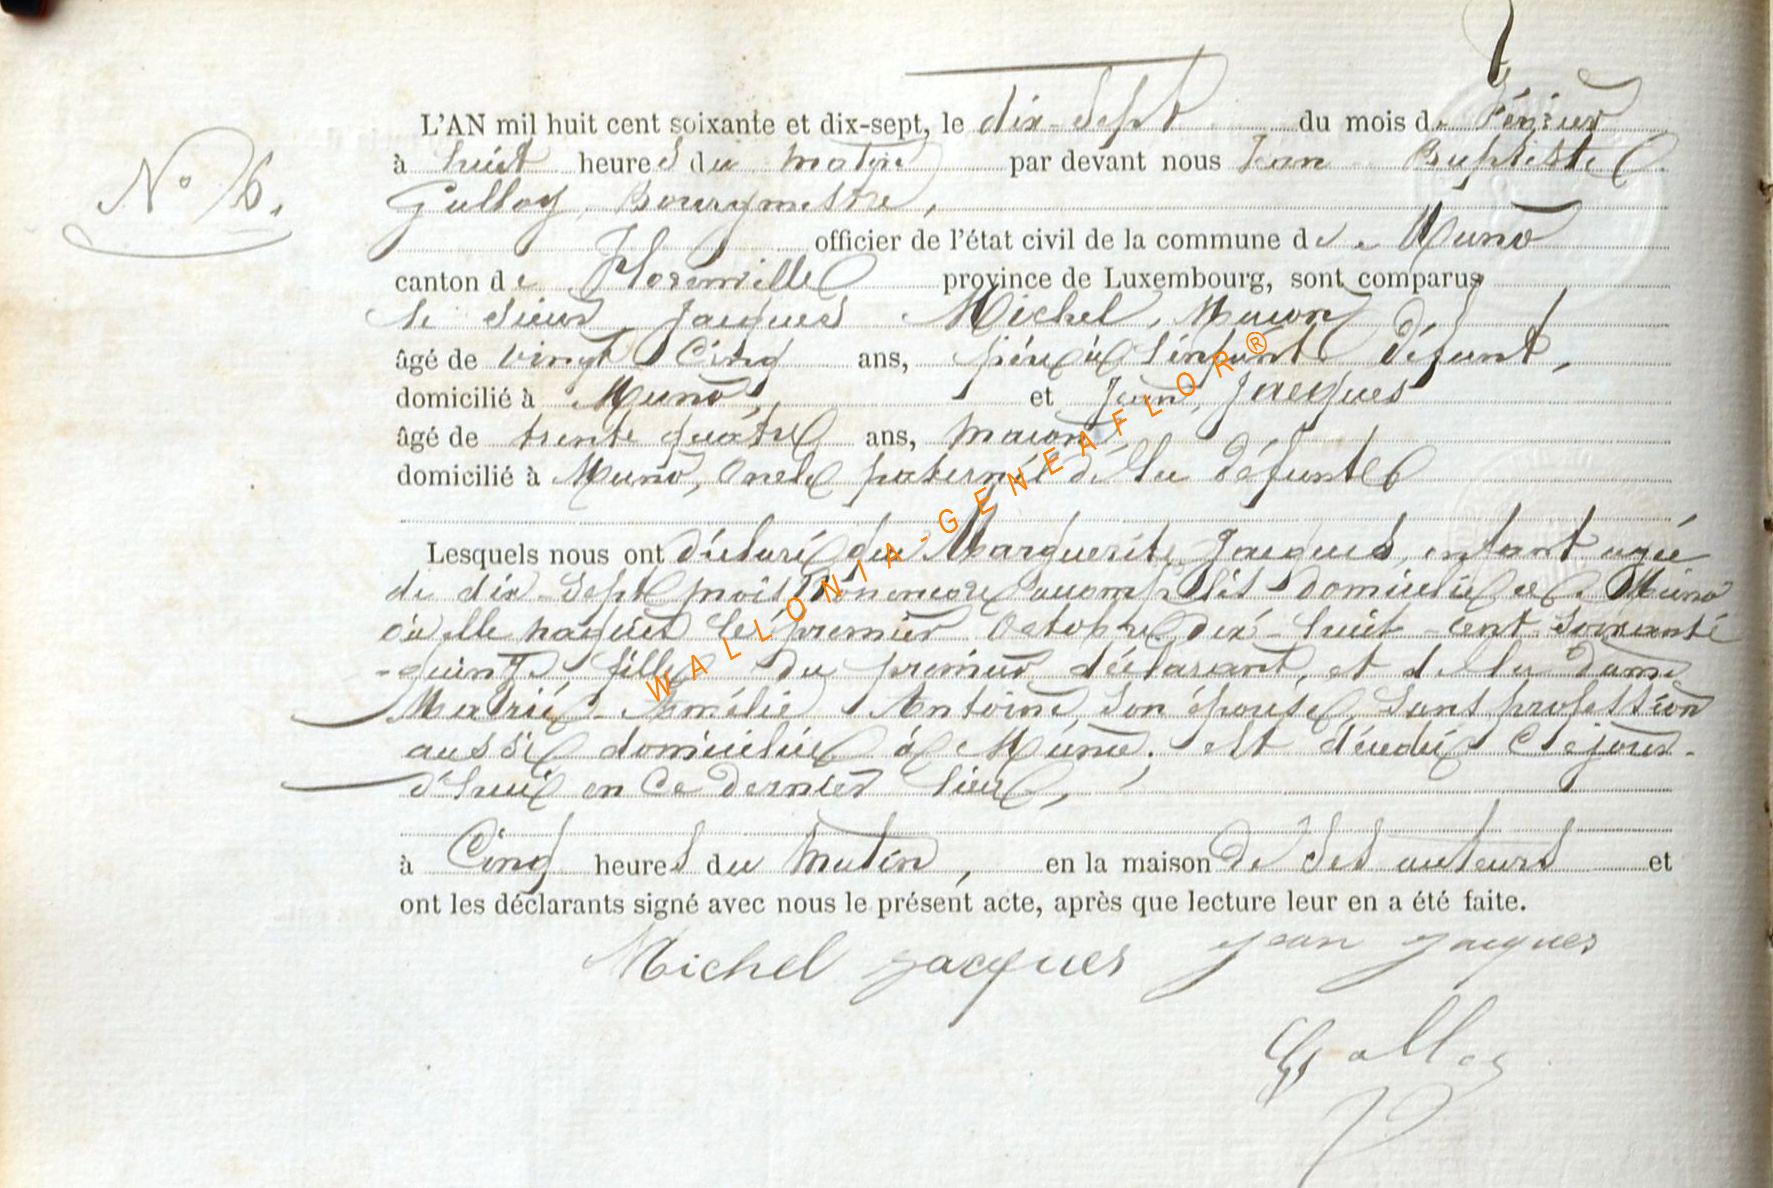 L'AN mil huit cent soixante et dix-sept, le dix-sept du mois de Février
N° 6.
à huit heures du matin par devant nous Jean Baptiste
Galloy, Bourgmestre,
officier de l'état civil de la commune de Muno
canton de Florenville province de Luxembourg, sont comparus
le sieur Jacques Michel, Macon
âgé de vingt cinq ans, père à l'enfant défunt,
domicilié à Muno, et Jean, Jacques
âgé de trente quatre ans, macon
domicilié à Muno, oncle paternel de la défunte
Lesquels nous ont déclaré que Marguerite Jacques, enfant agée
de dix-sept mois non encore accomplis domiciliée à Muno
où elle naquit le premier Octobre dix-huit-cent soixante
-quinze fille du premier déclarant, et de la dame
Marie Amélie Antoine son épouse, sans profession
aussi domiciliée à Muno, est décédée cejour-
d'huis en ce dernier lieu,
à Cinq heures du matin, en la maison de ses auteurs et
ont les déclarants signé avec nous le présent acte, après que lecture leur en a été faite.
Michel Jacques Jean Jacques
Galloy
WALLONIA-GENEAFLOR®